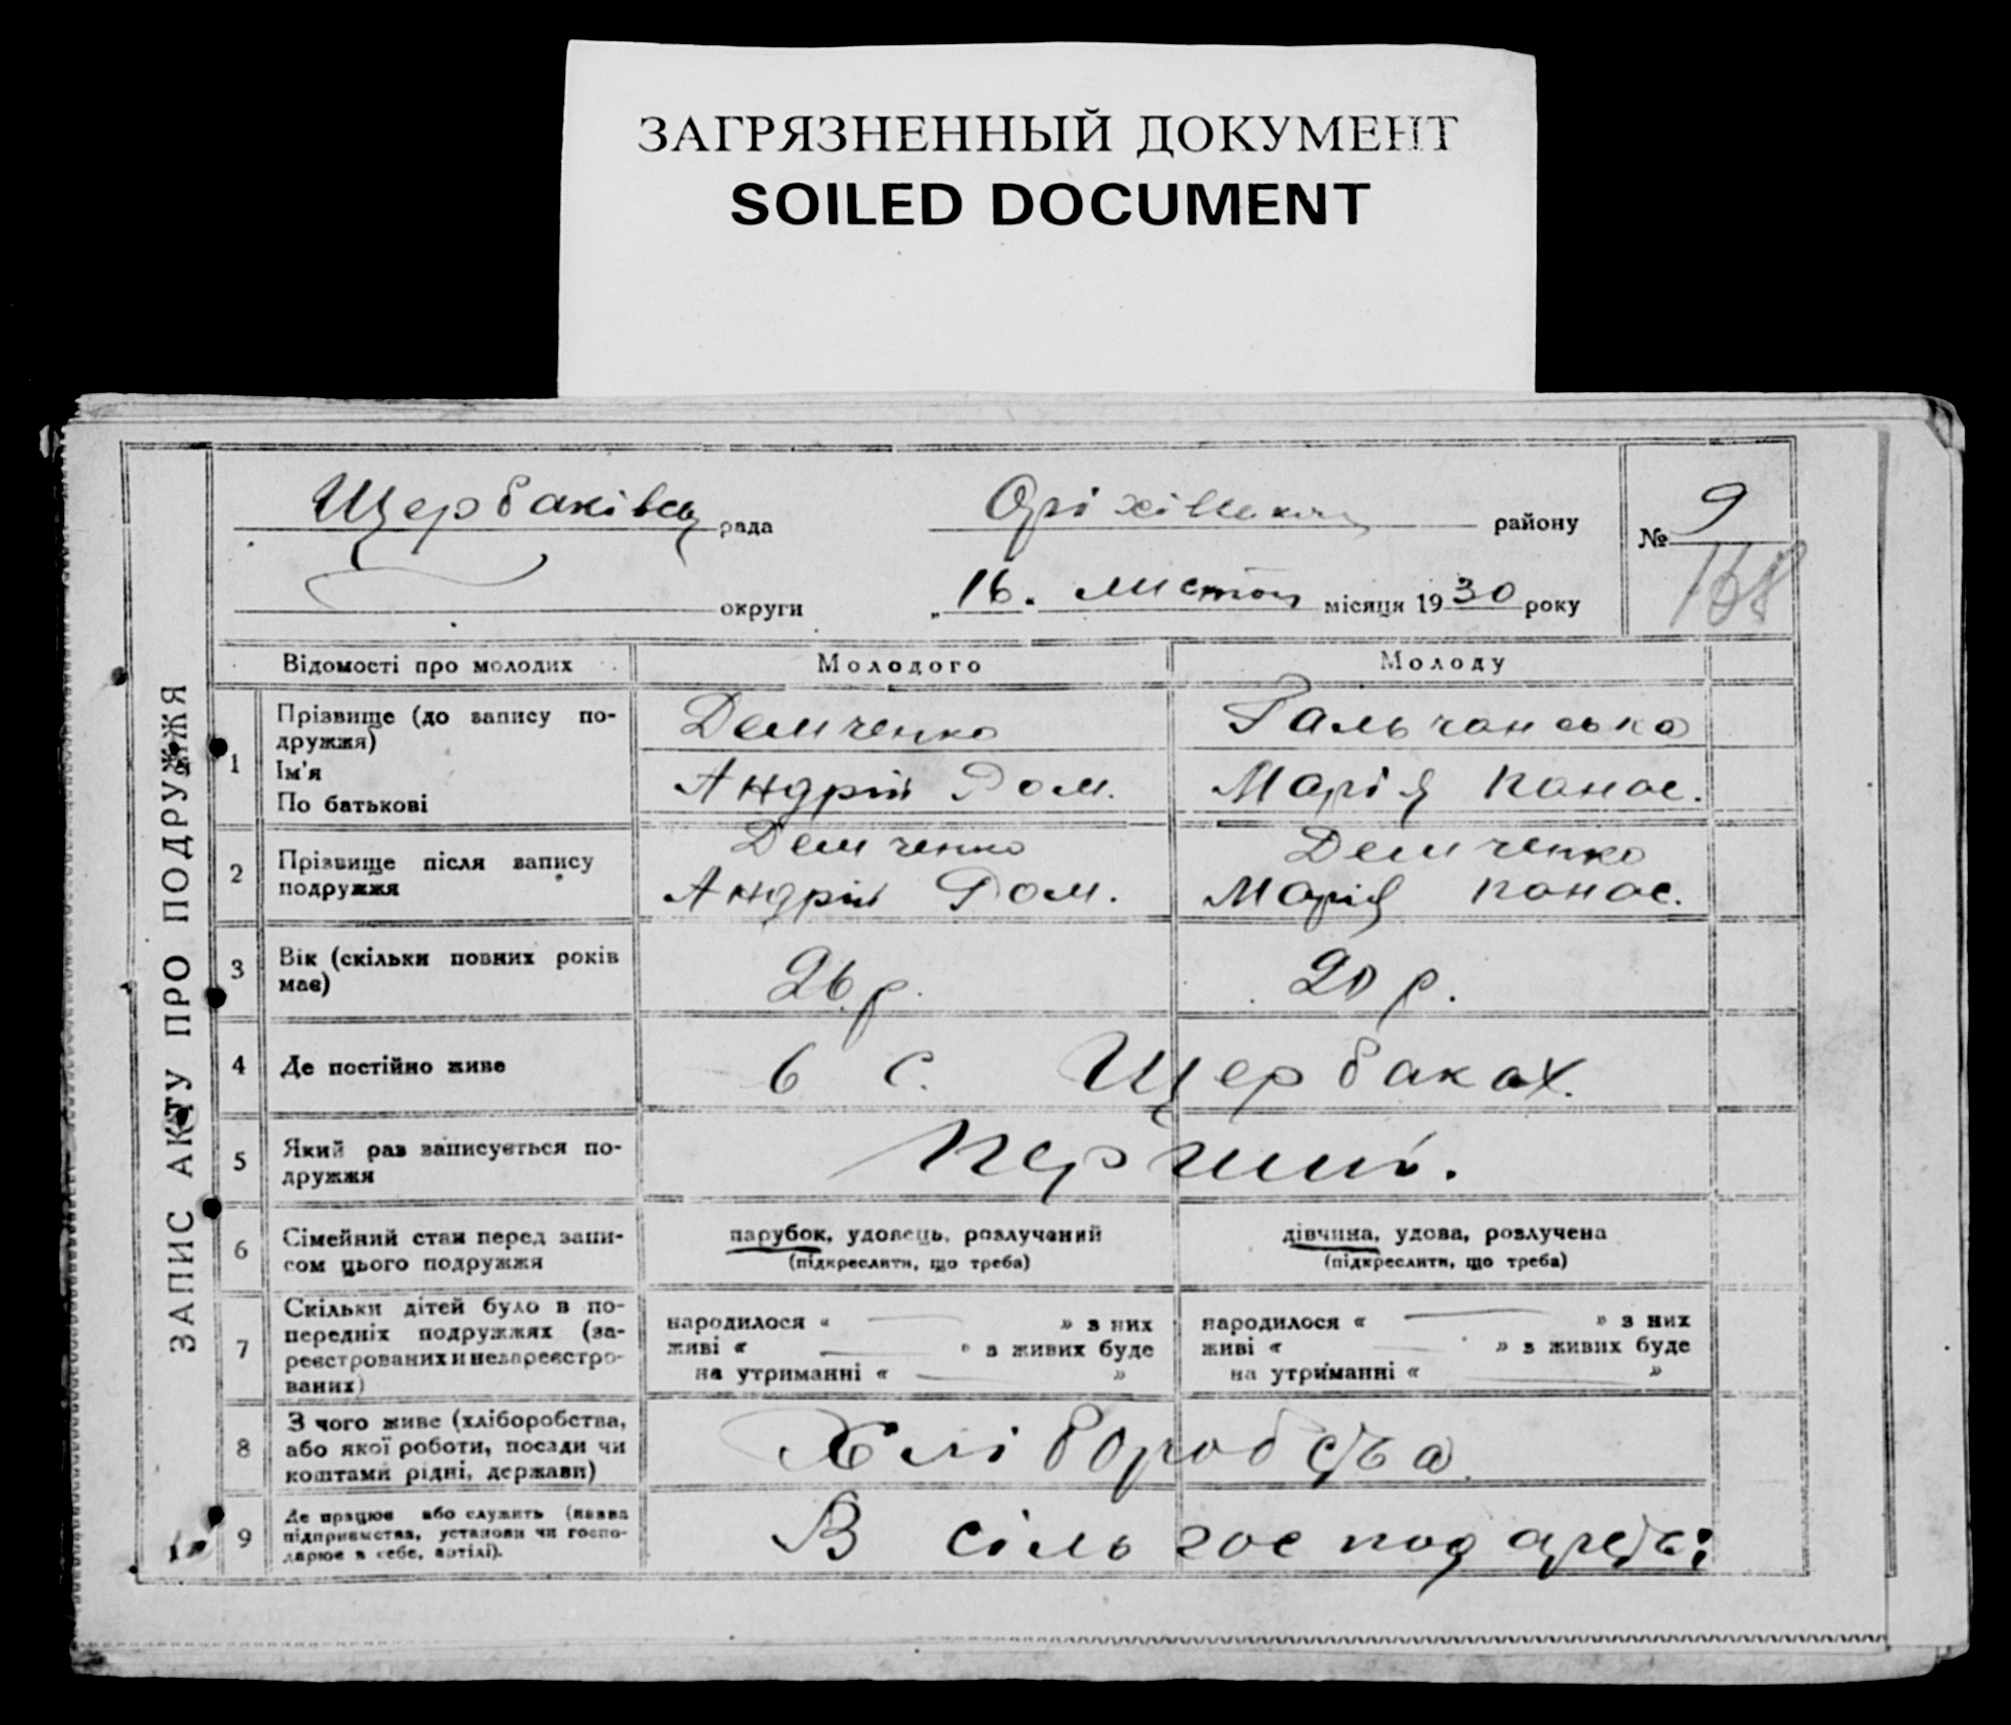 ЗАГРЯЗНЕННЫЙ ДОКУМЕНТ
SOILED DOCUMENT
ЗАПИС АКТУ ПРО ПОДРУЖЖЯ
Щербаківськ рада
району
№ 9
168
округи
„ 16. листоп місяця 1930 року
Відомості про молодих
Молодого
Молоду
1
Прізвище (до запису по-
дружжя)
Ім'я
По батькові
Демченко
Андрій Ром.
Гальчанська
Марія Панас.
2
Прізвище після запису
подружжя
Демченко
Андрій Ром.
Демченко
Марія Панас.
3
Вік (скільки повних років
має)
26 р.
20 р.
4
Де постійно живе
в с. Щербаках.
5
Який раз записується по-
дружжя
Перший.
6
Сімейний стан перед запи-
сом цього подружжя
парубок, удовець, розлучений
(підкреслити, що треба)
дівчина, удова, розлучена
(підкреслити, що треба)
7
Скільки дітей було в по-
передніх подружжях (за-
реєстрованих и незареєстро-
ваних)
народилося « — » з них
живі « — » з живих буде
на утриманні « — »
народилося « — » з них
живі « — » з живих буде
на утриманні « — »
8
З чого живе (хліборобства,
або якої роботи, посади чи
коштами рідні, держави)
Хліборобства
9
Де працює або служить (назва
підприємства, установи чи госпо-
дарює в себе, артілі).
В сільгосподарстві